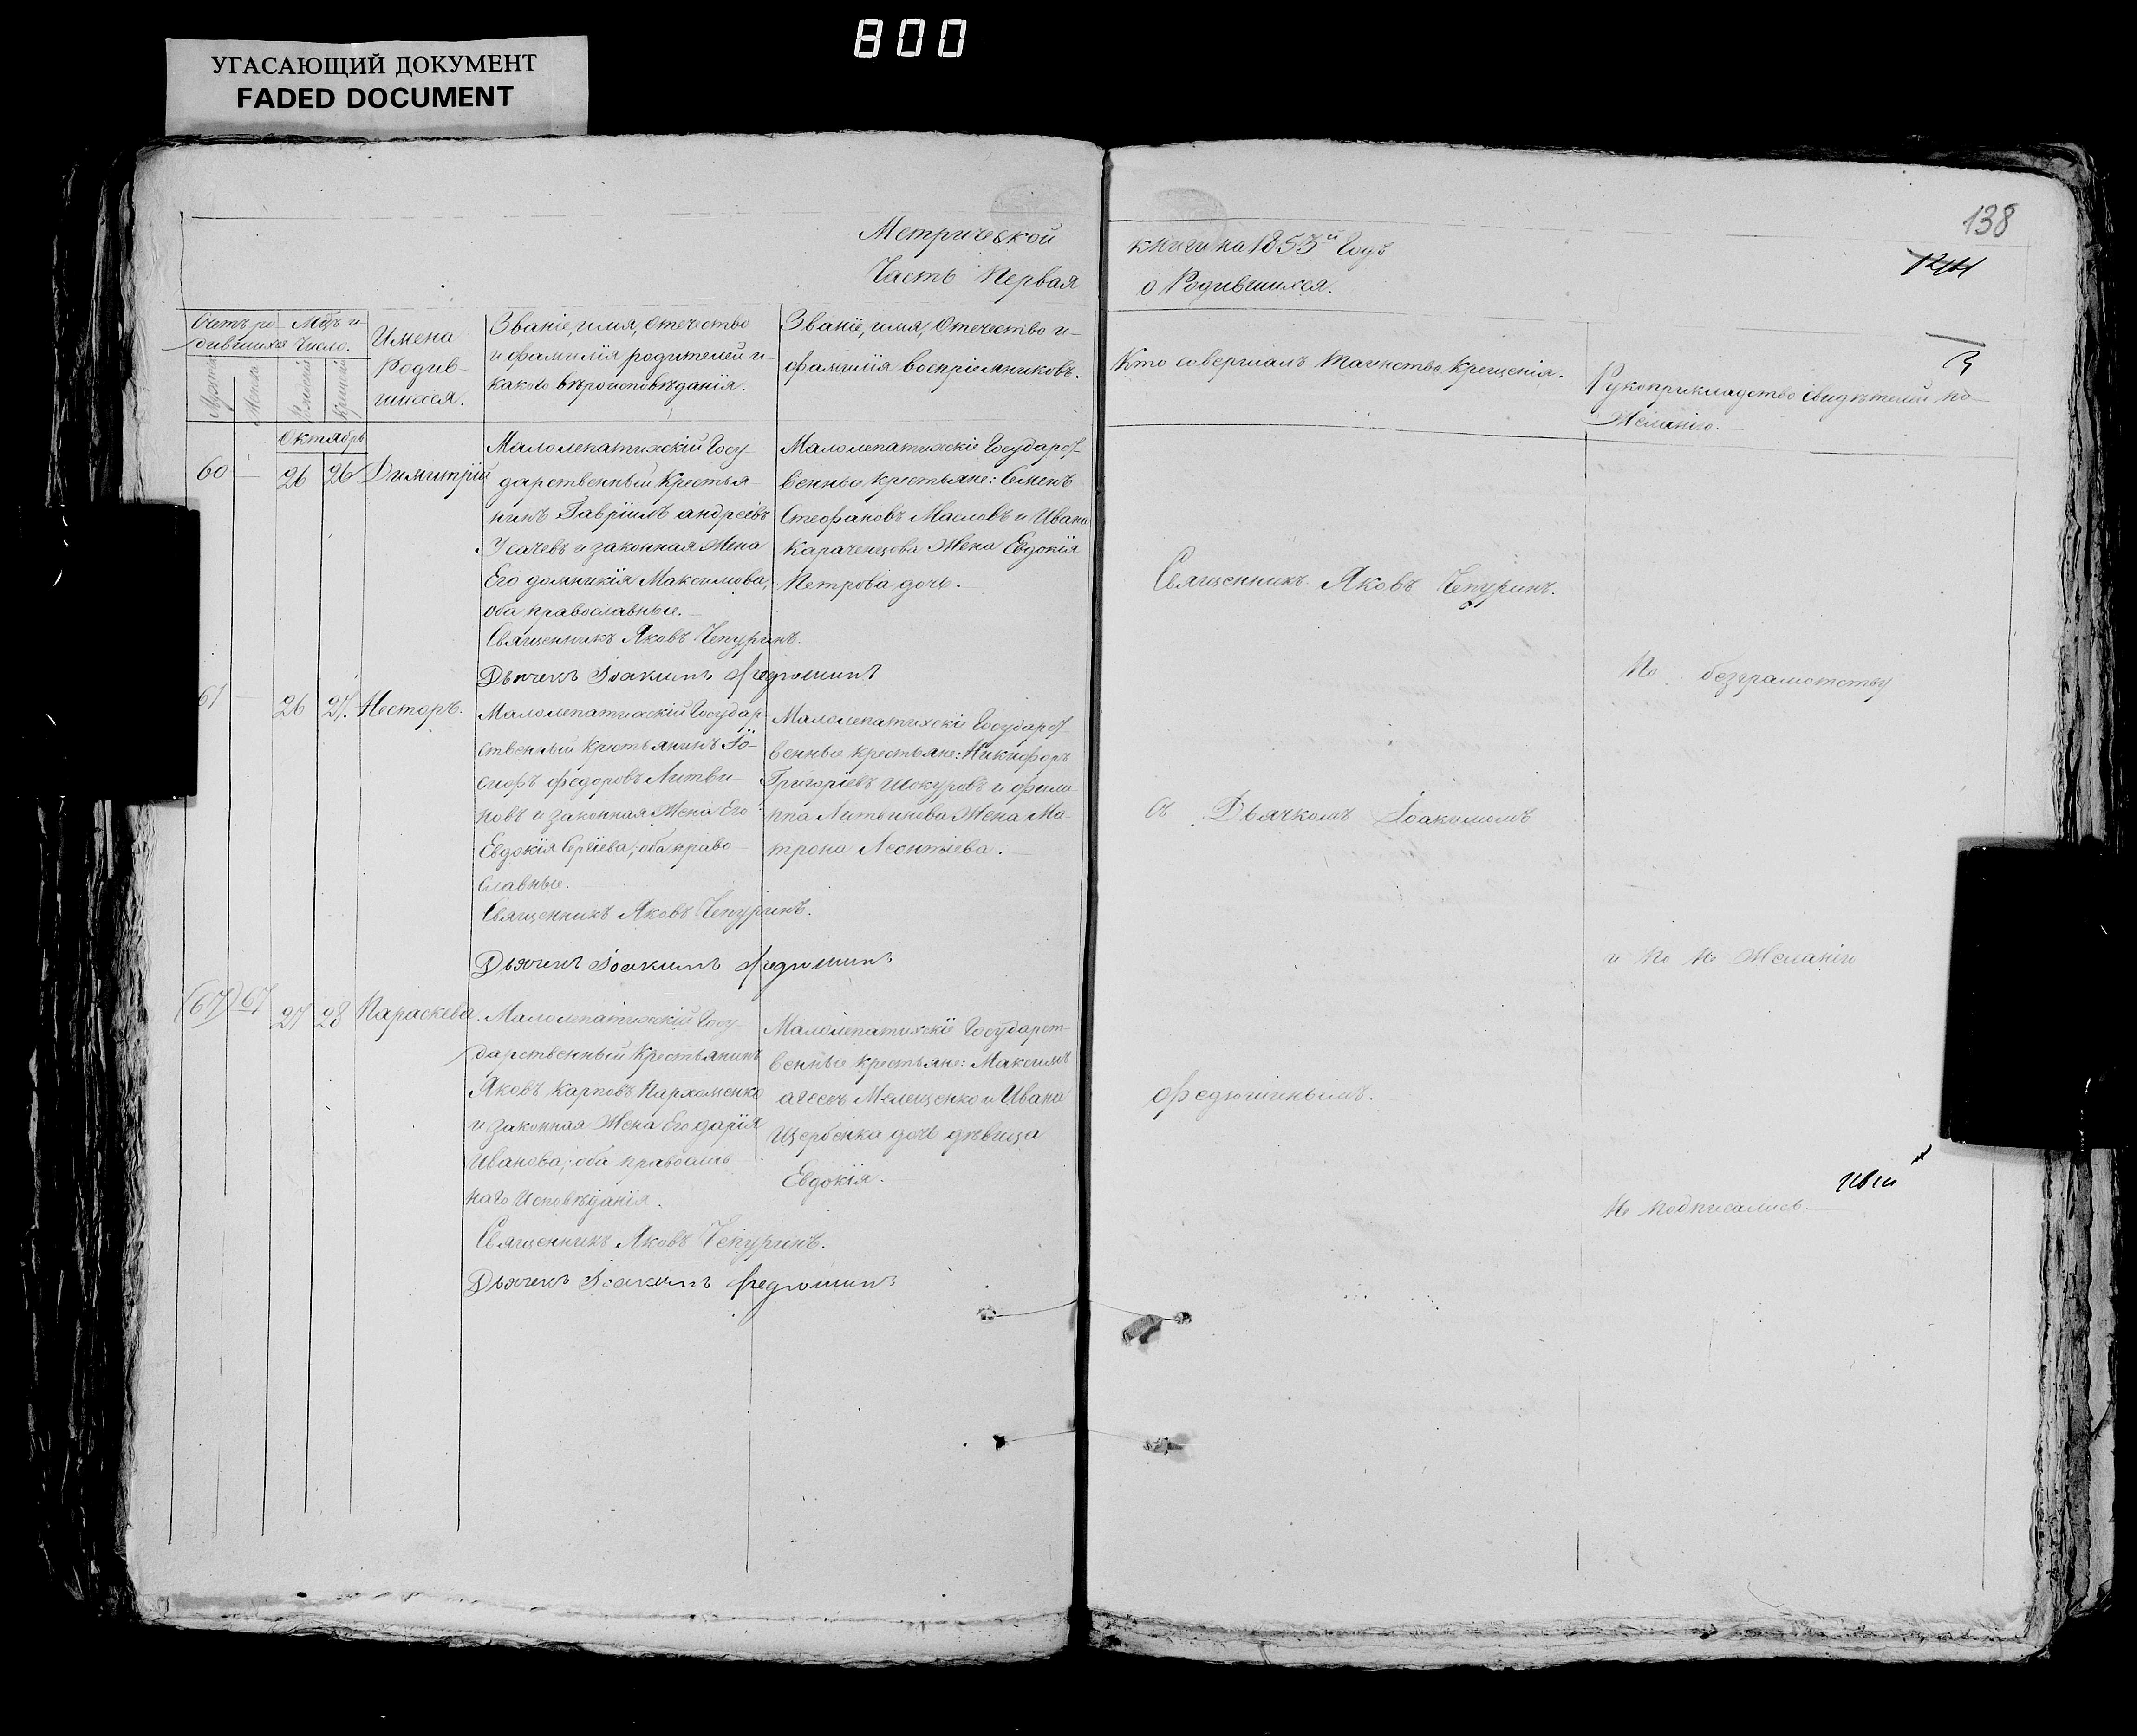 800
УГАСАЮЩИЙ ДОКУМЕНТ
FADED DOCUMENT
138
Метрической книги на 1853й Годъ
Часть Первая о Родившихся.
Счетъ ро-
дившихся
Мцъ и
Число.
Имена
Родив-
шихся.
Званіе, имя, отечество
и фамилія родителей и
какого вѣроисповѣданія.
Званіе, имя, Отечество и
фамилія воспріемниковъ.
Кто совершалъ таинство крещенія.
Рукоприкладство свидѣтелей по
Желанію.
Октябрь
60 — 26 26 Димитрій
Малолепатихскій Госу-
дарственный Крестья-
нинъ Гавріилъ андреевъ
Усачевъ и законная Жена
Его домникія Максимова,
оба православные.
Священникъ Яковъ Чепуринъ.
Дьячекъ Іоакимъ Федюшинъ
Малолепатихскіе Государст-
венные крестьяне: Семенъ
Стефановъ Масловъ и Ивана
Караченцова Жена Евдокія
Петрова дочь.
61 — 26 27. Несторъ.
Малолепатихскій Государ-
ственный Крестьянинъ Іо-
сифъ федоровъ Литви-
новъ и законная Жена Его
Евдокія Сергіева; оба право-
славные.
Священникъ Яковъ Чепуринъ.
Дьячекъ Іоакимъ Федюшинъ
Малолепатихскіе Государст-
венные крестьяне: Никифоръ
Григоріевъ Шокуровъ и фили-
ппа Литвинова Жена Ма-
трона Леонтіева.
(67) 67 27 28 Параскева.
Малолепатихскій Госу-
дарственный Крестьянинъ
Яковъ Карповъ Пархоменко
и законная Жена Его дарія
Иванова; оба православ-
наго Исповѣданія.
Священникъ Яковъ Чепуринъ.
Дьячекъ Іоакимъ Федюшинъ
Малолепатихскіе Государст-
венные крестьяне: Максимъ
Мелещенко и Ивана
Щербенка дочь дѣвица
Евдокія.
Священникъ Яковъ Чепуринъ.
съ Дьячкомъ Іоакимомъ
Федюшинымъ.
По безграмотству
и по не Желанію
не подписались.